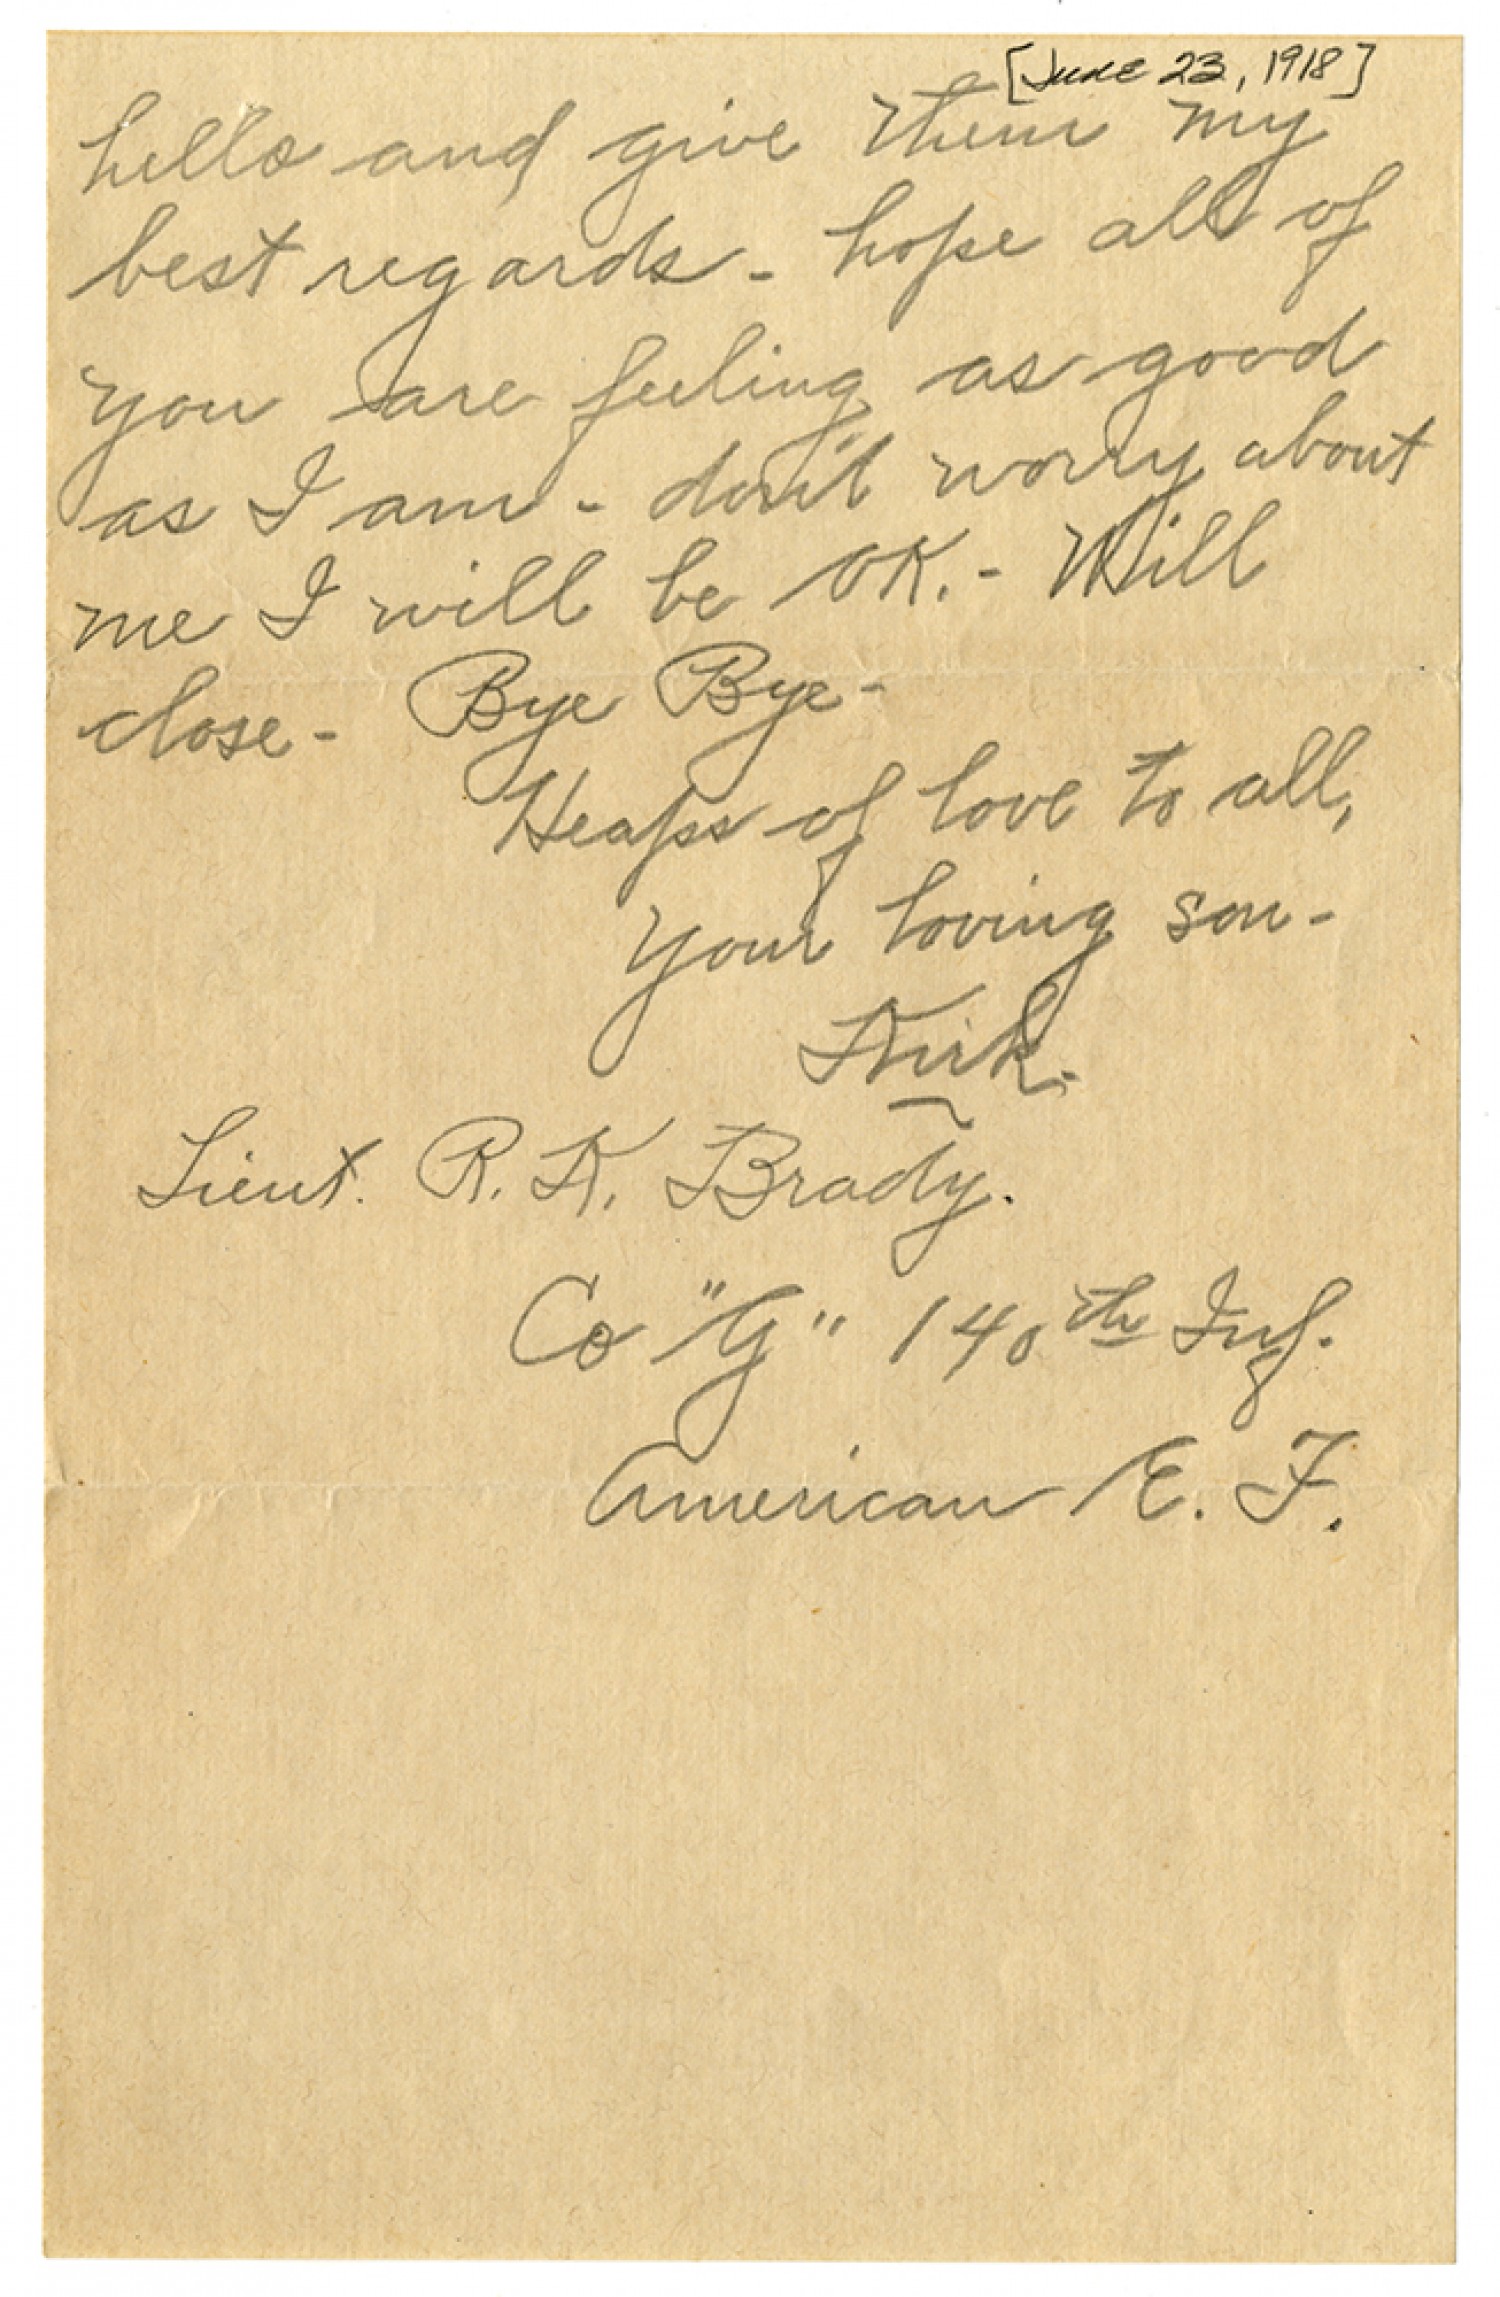 [June 23, 1918]
hello and give them my
best regards - hope all of
you are feeling as good
as I am - don't worry about
me I will be OK. - Will
close - Bye Bye -
Heaps of love to all,
Your loving son -
Kirk.
Lieut. R. K. Brady.
Co "G" 140th Inf.
American E. F.